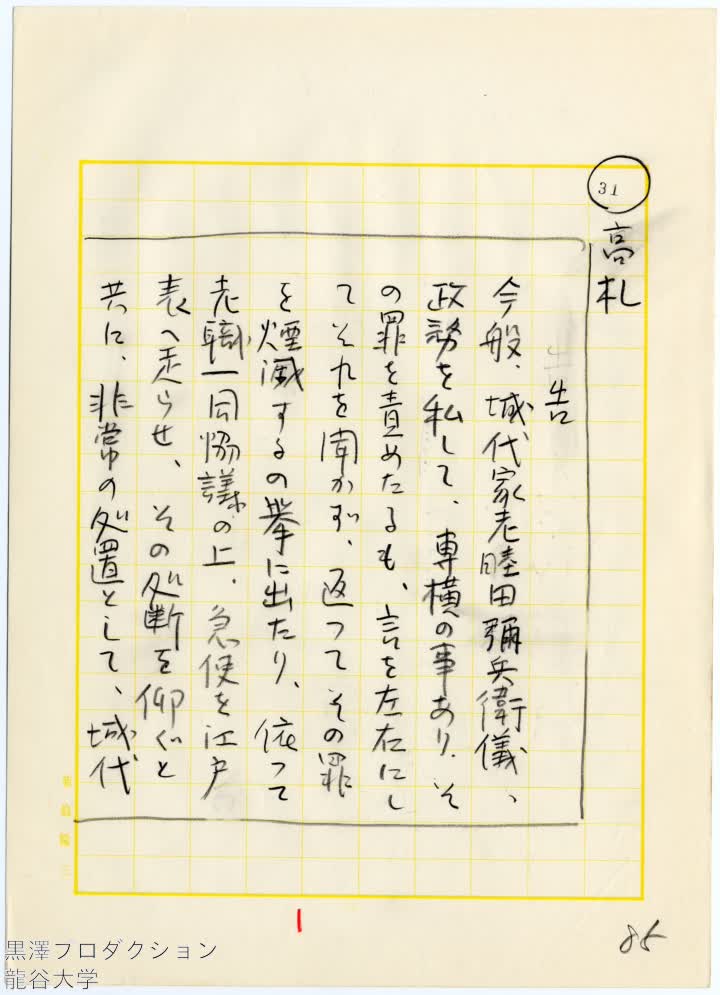 31
高札
告
今般、城代家老睦田彌兵衛儀、
政務を私して、専横の事あり、そ
の罪を責めたるも、言を左右にし
てそれを聞かず、返つてその罪
を煙滅するの挙に出たり、依つて
老職一同協議の上、急使を江戸
表へ走らせ、その処断を仰ぐと
共に、非常の処置として、城代
85
黒澤プロダクション
龍谷大学